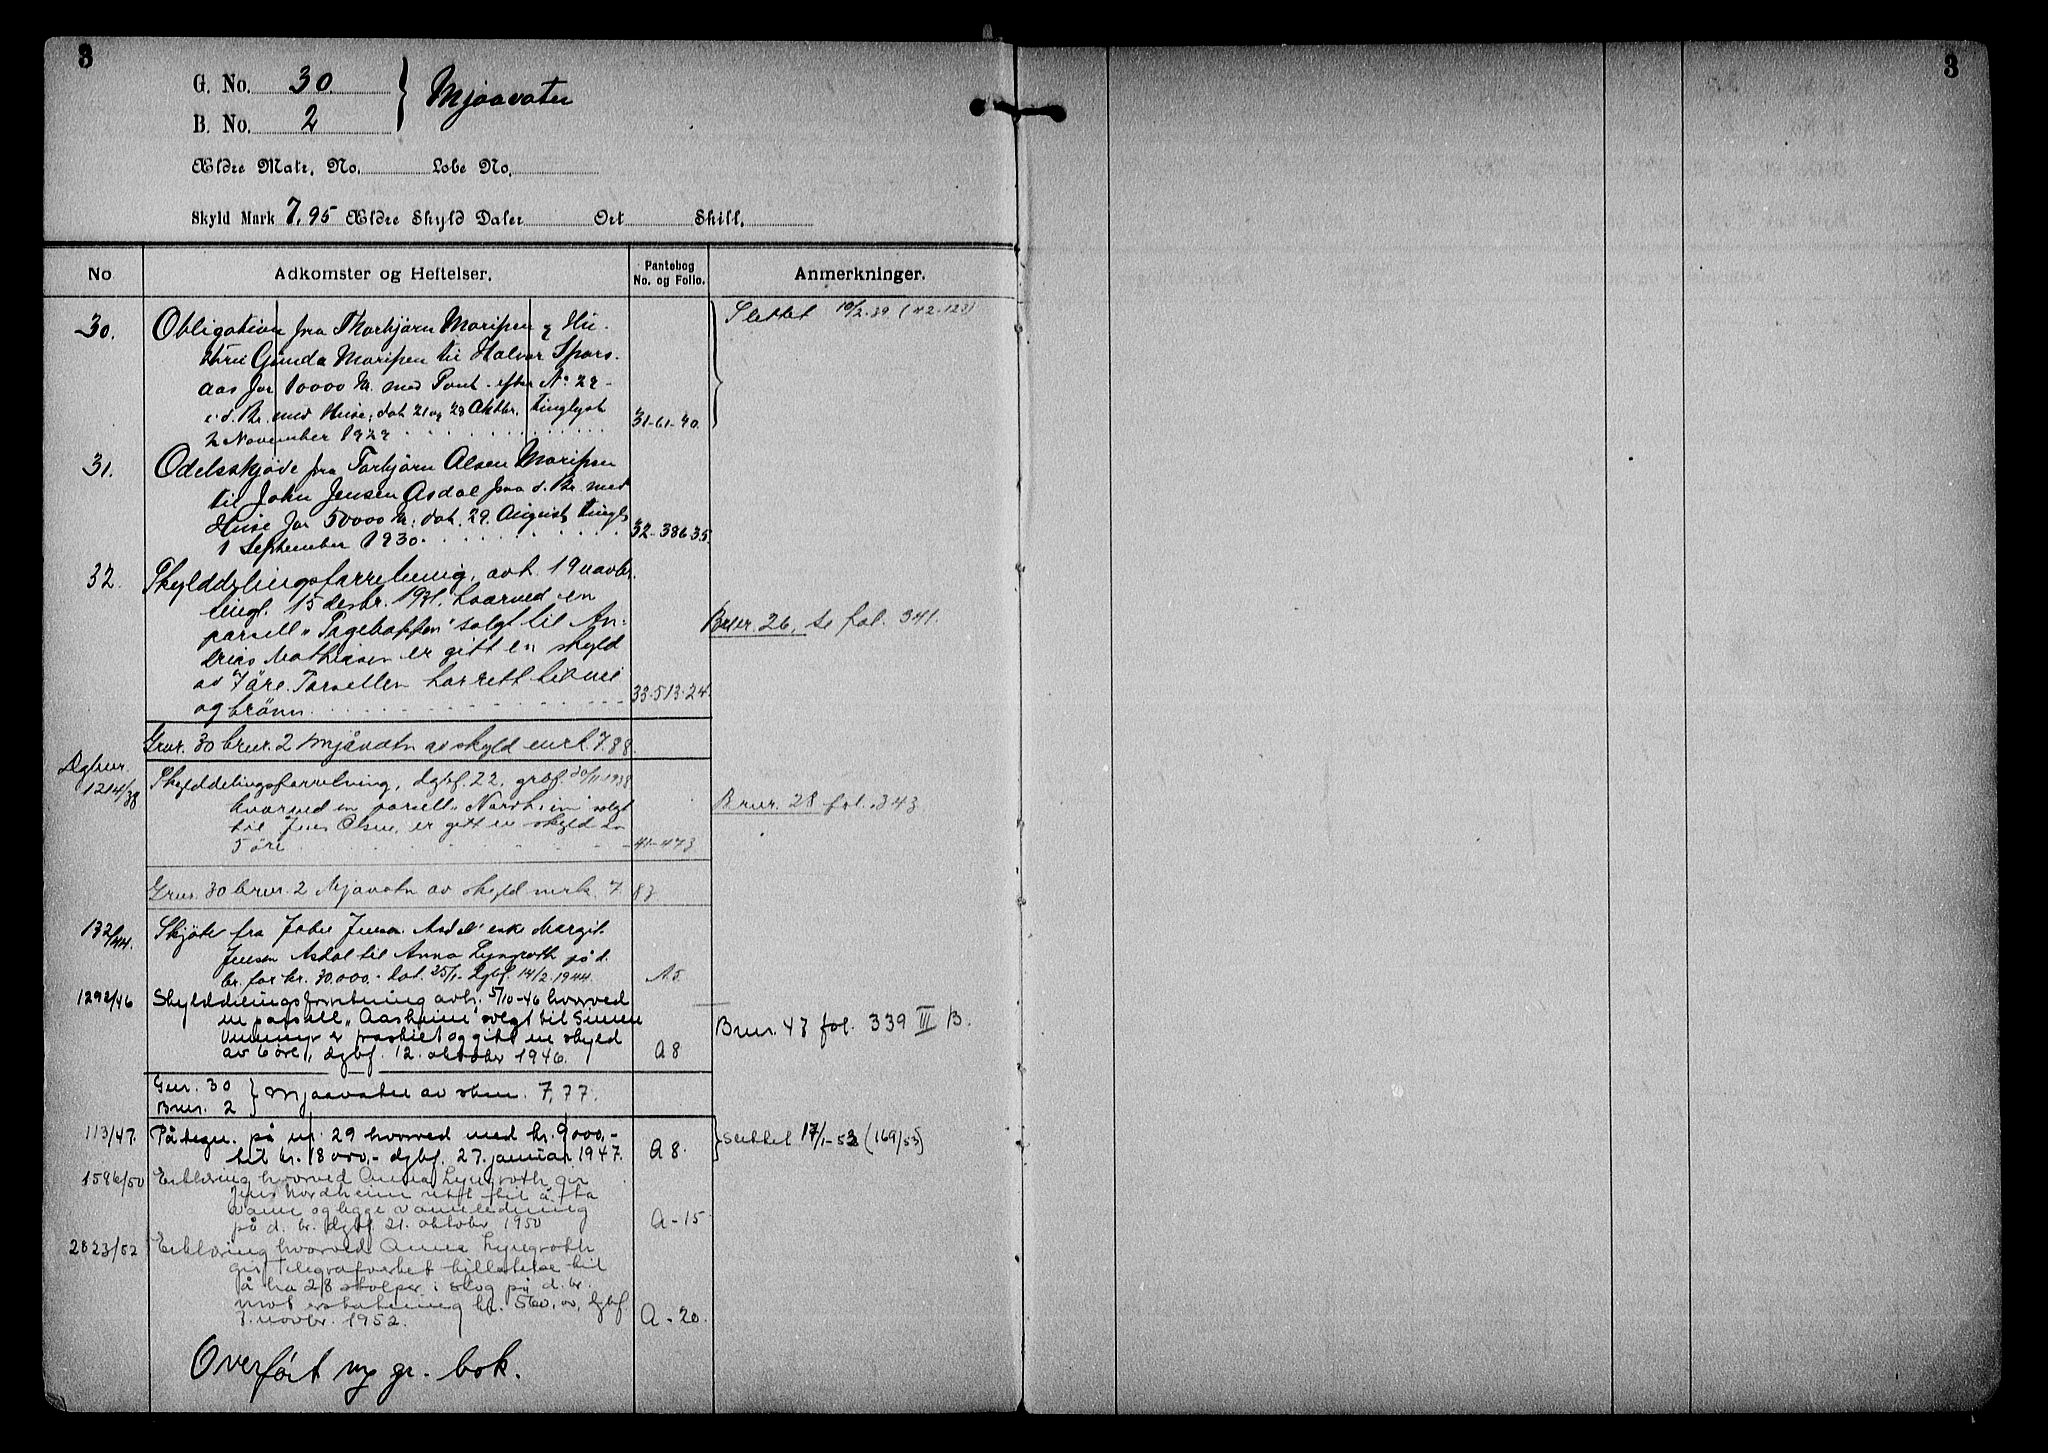 3
3
G. No. 30
B. No. 2
Mjaavatn
Ældre Matr. No. Løbe No.
Skyld Mark 7,95 Ældre Skyld Daler Ort Skill.
No
Adkomster og Heftelser.
Pantebog
No. og Folio.
Anmerkninger.
30. Obligation fra Thorbjørn Moripen og Hu-
stru Gunda Moripen til Halvor Spors-
aas for 10000 Kr. med Pant efter No 22
i d. Br. med Huse, dat. 21 og 28 Oktbr., tinglyst
2 November 1922 31-61-40.
Slettet 10/2-39 (42-123)
31. Odelsskjøde fra Torbjørn Olsen Moripen
til John Jensen Asdal paa d. Br. med
Huse for 50000 Kr. dat. 29 August, tingl.
1 September 1930. 32-386-35.
32. Skylddelingsforretning, avh. 19 novbr.
tingl. 15 desbr. 1931, hvorved en
parsell „Pagehoppen" solgt til An-
dreas Mathiesen er gitt en skyld
av 7 øre. Parsellen har rett til vei
og brønn. 33-513-24.
Brnr. 26, se fol. 341.
Gnr. 30 brnr. 2 Mjåvatn av skyld mrk. 7.88.
Dgbnr.
1214/38 Skylddelingsforretning, dgbf. 22, grbf. 30/11-1938
hvorved en parsell „Nordheim" solgt
til Jens Olsen, er gitt en skyld av
5 øre 41-473
Brnr. 28 fol. 343
Gnr. 30 brnr. 2 Mjåvatn av skyld mrk. 7 83
132/44. Skjøte fra John Jensen Asdal's enke Margit
Jensen Asdal til Anna Lyngroth på d.
br. for kr. 30.000.- dat. 25/1- Dgbf. 14/2 1944. A5
1292/46 Skylddelingsforretning avh. 5/10-46 hvorved
en parsell „Aasheim" solgt til Simen
er fraskilt og gitt en skyld
av 6 øre, dgbf. 12. oktober 1946. A8
Brnr. 47 fol. 339 III B.
Gnr. 30
Brnr. 2 } Mjaavatn av skm. 7,77.
113/47. Påtegn. på nr. 29 hvorved med kr. 9000,-
til kr. 18000,- dgbf. 27. januar 1947. A8.
slettet 17/1-53 (169/53)
1586/50 Erklæring hvorved Anna Lyngroth gir
Jens Nordheim rett til å ta
vann og legge vannledning
på d. br. dgbf. 21. oktober 1950 A-15
2823/52 Erklæring hvorved Anna Lyngroth
gir Telegrafverket tillatelse til
å ha 28 stolper i skog på d. br.
mot erstatning kr. 560,00, dgbf.
7. novbr. 1952. A-20.
Overført ny gr. bok.